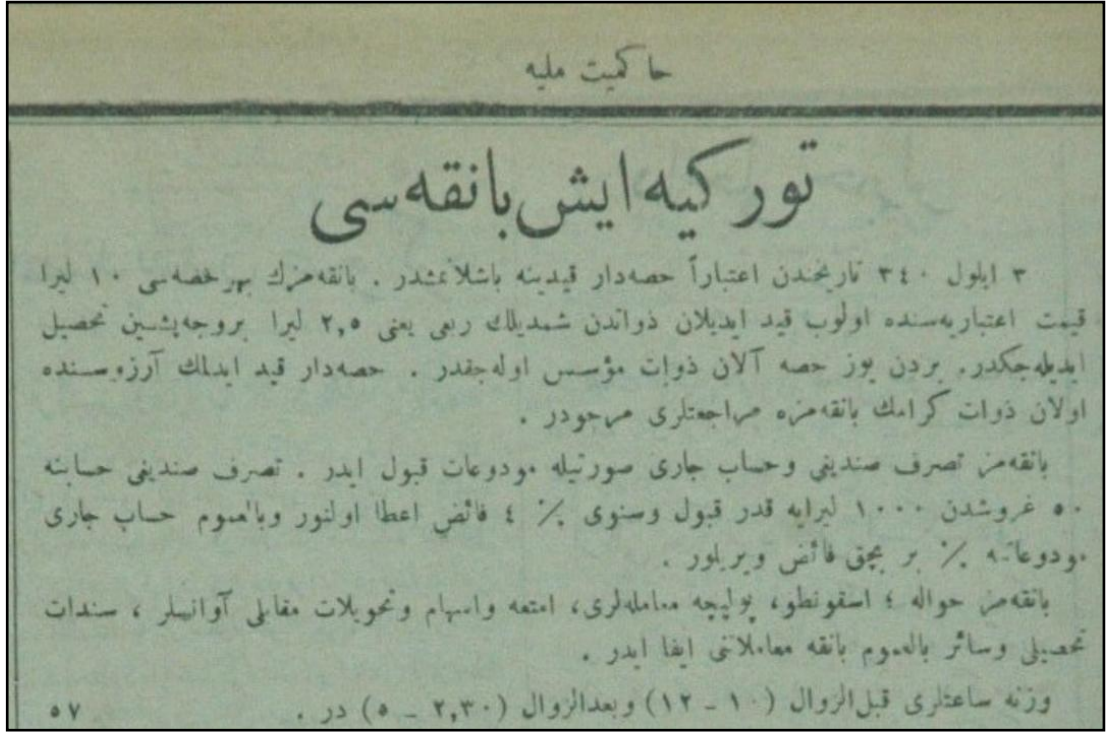 حاكميت مليه
توركيه ايش بانقه‌سى
٣ ايلول ٣٤٠ تاريخندن اعتباراً حصه‌دار قيدينه باشلانمشدر . بانقه‌مزك بهر حصه‌سى ١٠ ليرا
قيمت اعتباريه‌سنده اولوب قيد ايديلان ذواتدن شمديلك ربعى يعنى ٢,٥ ليرا بروجه‌پشين تحصيل
ايديله‌جكدر. بردن يوز حصه آلان ذوات مؤسس اوله‌جقدر . حصه‌دار قيد ايدلمك آرزوسنده
اولان ذوات كرامك بانقه‌مزه مراجعتلرى مرجودر .
بانقه‌مز تصرف صنديغى وحساب جارى صورتيله مودوعات قبول ايدر . تصرف صنديغى حسابنه
٥٠ غروشدن ١٠٠٠ ليرايه قدر قبول وسنوى ٪ ٤ فائض اعطا اولنور وبالعموم حساب جارى
مودوعاتنه ٪ بر بچق فائض ويريلور .
بانقه‌مز حواله ؛ اسقونطو، پوليچه معامله‌لرى، امتعه واسهام وتحويلات مقابلى آوانسلر ، سندات
تحصيلى وسائر بالعموم بانقه معاملاتنى ايفا ايدر .
وزنه ساعتلرى قبل‌الزوال (١٠ ـ ١٢) وبعدالزوال (٢,٣٠ ـ ٥) در . ٥٧